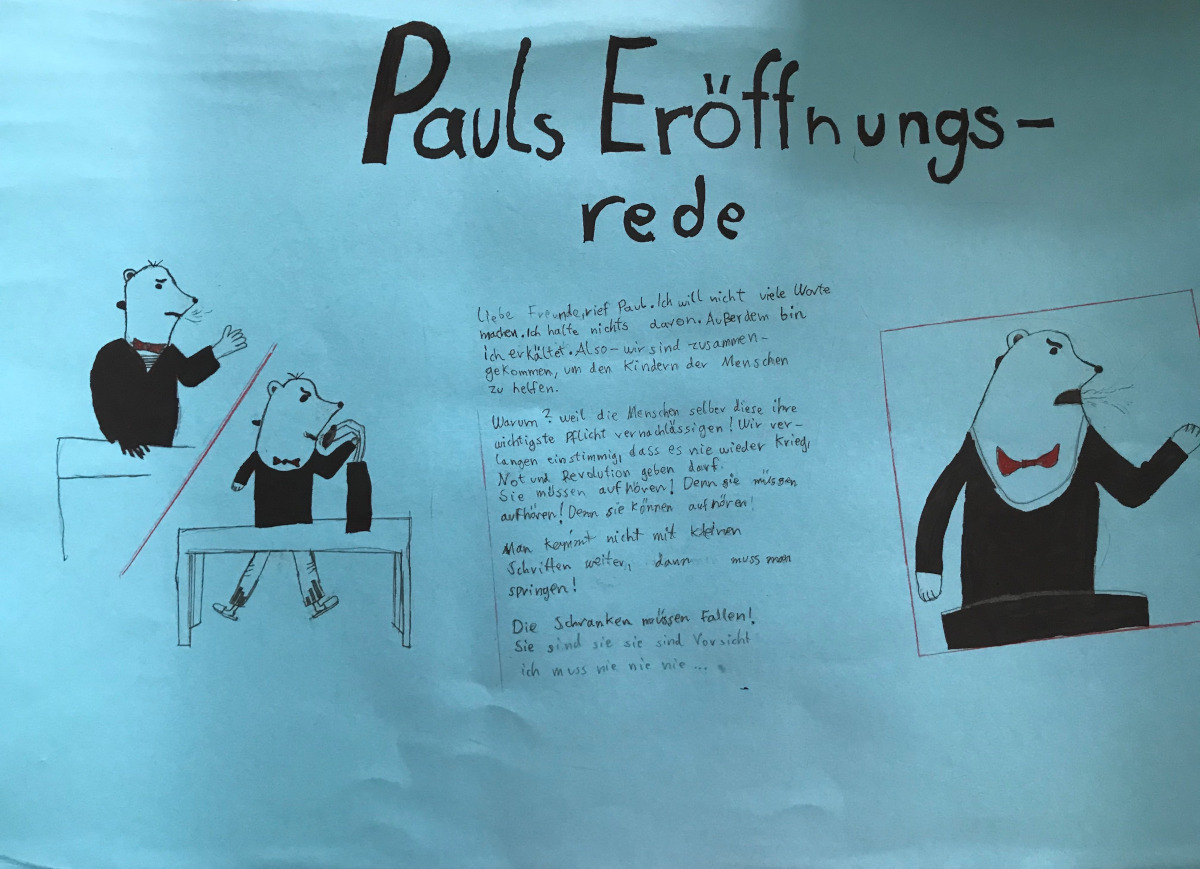 Pauls Eröffnungs-
rede
Liebe Freunde, rief Paul. Ich will nicht viele Worte
machen. Ich halte nichts davon. Außerdem bin
ich erkältet. Also - wir sind zusammen-
gekommen, um den Kindern der Menschen
zu helfen.
Warum? weil die Menschen selber diese ihre
wichtigste Pflicht vernachlässigen! Wir ver-
langen einstimmig, dass es nie wieder Krieg,
Not und Revolution geben darf.
Sie müssen aufhören! Denn sie müssen
aufhören! Denn sie können aufhören!
Man kommt nicht mit kleinen
Schritten weiter, dann muss man
springen!
Die Schranken müssen Fallen!
Sie sind sie sie sind Vorsicht
ich muss nie nie nie ...